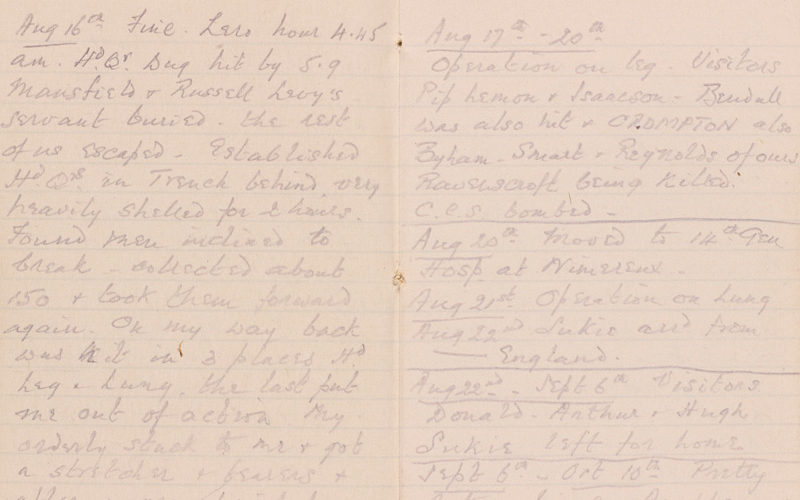 Aug 16th Fine. Zero hour 4.45
am. Hd Qrs Dug hit by 5.9
Mansfield & Russell Levy's
servant buried. The rest
of us escaped - Established
Hd Qrs in Trench behind, very
heavily shelled for 2 hours.
Found men inclined to
break - collected about
150 & took them forward
again. On my way back
was hit in 3 places Hd
Leg & Lung, the last put
me out of action My
orderly stuck to me & got
a stretcher & bearers &
Aug 17th - 20th
Operation on leg - Visitors
Pip Lemon & Isaacson - Bendall
was also hit & CROMPTON also
Byham - Smart & Reynolds of ours
Ravenscroft being killed.
C.C.S. bombed -
Aug 20th Moved to 14th Gen
Hosp at Wimereux -
Aug 21st Operation on Lung
Aug 22nd Sukie arrd from
England.
Aug 22nd - Sept 6th Visitors
Donald - Arthur & Hugh
Sukie left for home
Sept 6th - Oct 10th Pretty